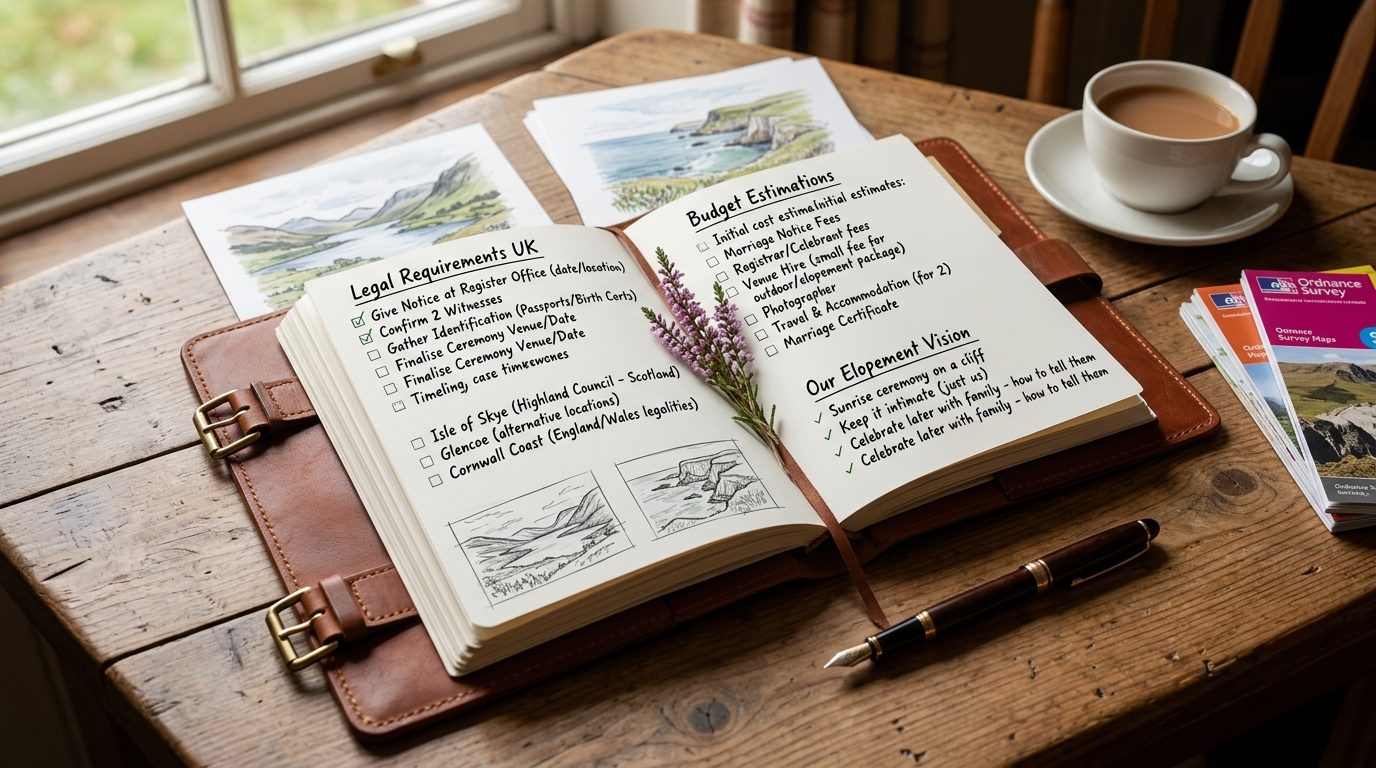 Legal Requirements UK
Give Notice at Register Office (date/location)
Confirm 2 Witnesses
Gather Identification (Passports/Birth Certs)
Finalise Ceremony Venue/Date
Finalise Ceremony Venue/Date
Timeling, case timewcnes
Isle of Skye (Highland Council - Scotland)
Glencoe (alternative locations)
Cornwall Coast (England/Wales legalities)
Budget Estimations
Initial cost estima/nitial estimates:
Marriage Notice Fees
Registrar/Celebrant fees
Venue Hire (small fee for
outdoor/elopement package)
Photographer
Travel & Accommodation (for 2)
Marriage Certificate
Our Elopement Vision
Sunrise ceremony on a cliff
Keep it intimate (just us)
Celebrate later with family - how to tell them
Celebrate later with family - how to tell them
Ordnance
Survey
Survey Maps